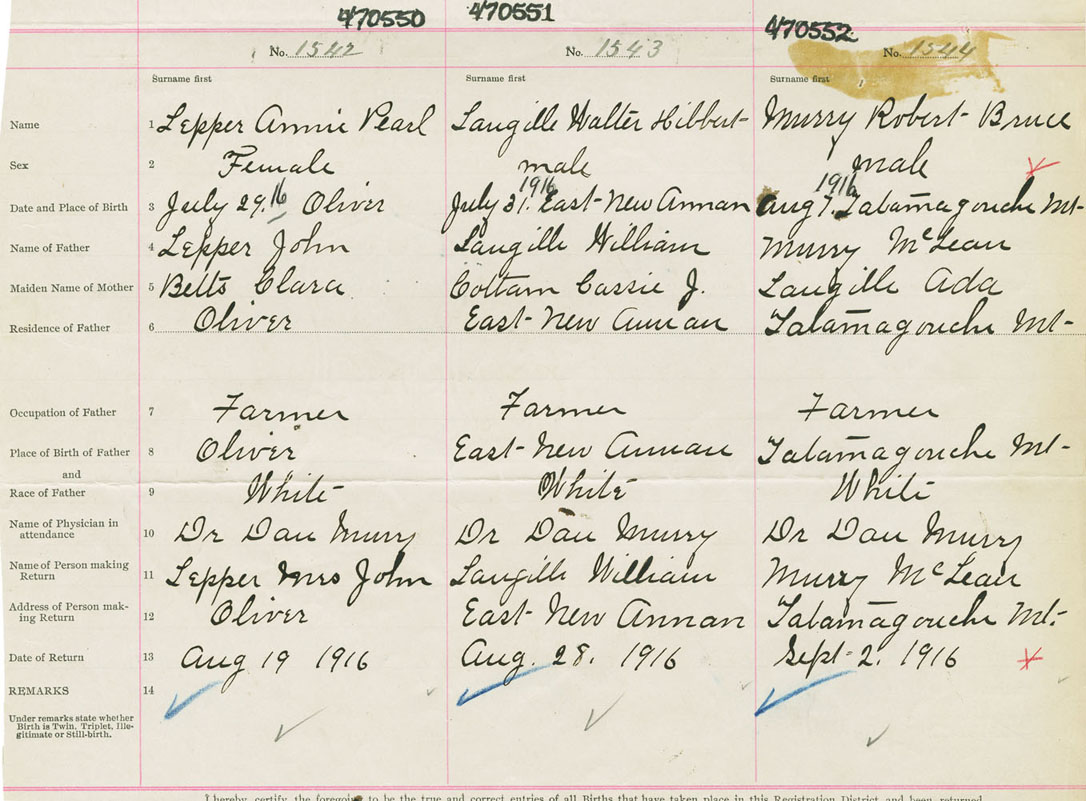 470550 470551 470552
No. 1542 No. 1543 No. 1544
Surname first Surname first Surname first
Name 1 Lepper Annie Pearl Langille Walter Hibbert Murry Robert Bruce
Sex 2 Female male male
1916 1916
Date and Place of Birth 3 July 29. 16 Oliver July 31. East New Annan Aug 7. Tatamagouche Mt
Name of Father 4 Lepper John Langille William Murry McLean
Maiden Name of Mother 5 Betts Clara Cottam Cassie J. Langille Ada
Residence of Father 6 Oliver East New Annan Tatamagouche Mt
Occupation of Father 7 Farmer Farmer Farmer
Place of Birth of Father 8 Oliver East New Annan Tatamagouche Mt
and
Race of Father 9 White White White
Name of Physician in
attendance 10 Dr Dan Murry Dr Dan Murry Dr Dan Murry
Name of Person making
Return 11 Lepper Mrs John Langille William Murry McLean
Address of Person mak-
ing Return 12 Oliver East New Annan Tatamagouche Mt.
Date of Return 13 Aug 19 1916 Aug. 28. 1916 Sept 2. 1916
REMARKS 14
Under remarks state whether
Birth is Twin, Triplet, Ille-
gitimate or Still-birth.
I hereby certify the foregoing to be the true and correct entries of all Births that have taken place in this Registration District and been returned